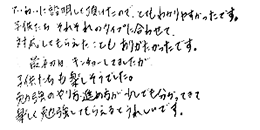 ていねいに説明して頂けたので、とてもわかりやすかったです。
子供たち それぞれのタイプに合わせて、
対応してもらえた事もありがたかったです。
最初は キンチョーしてましたが、
子供たちも楽しそうでした。
勉強のやり方、進め方が 少しでも分かってきて
楽しく勉強してもらえるとうれしいです。